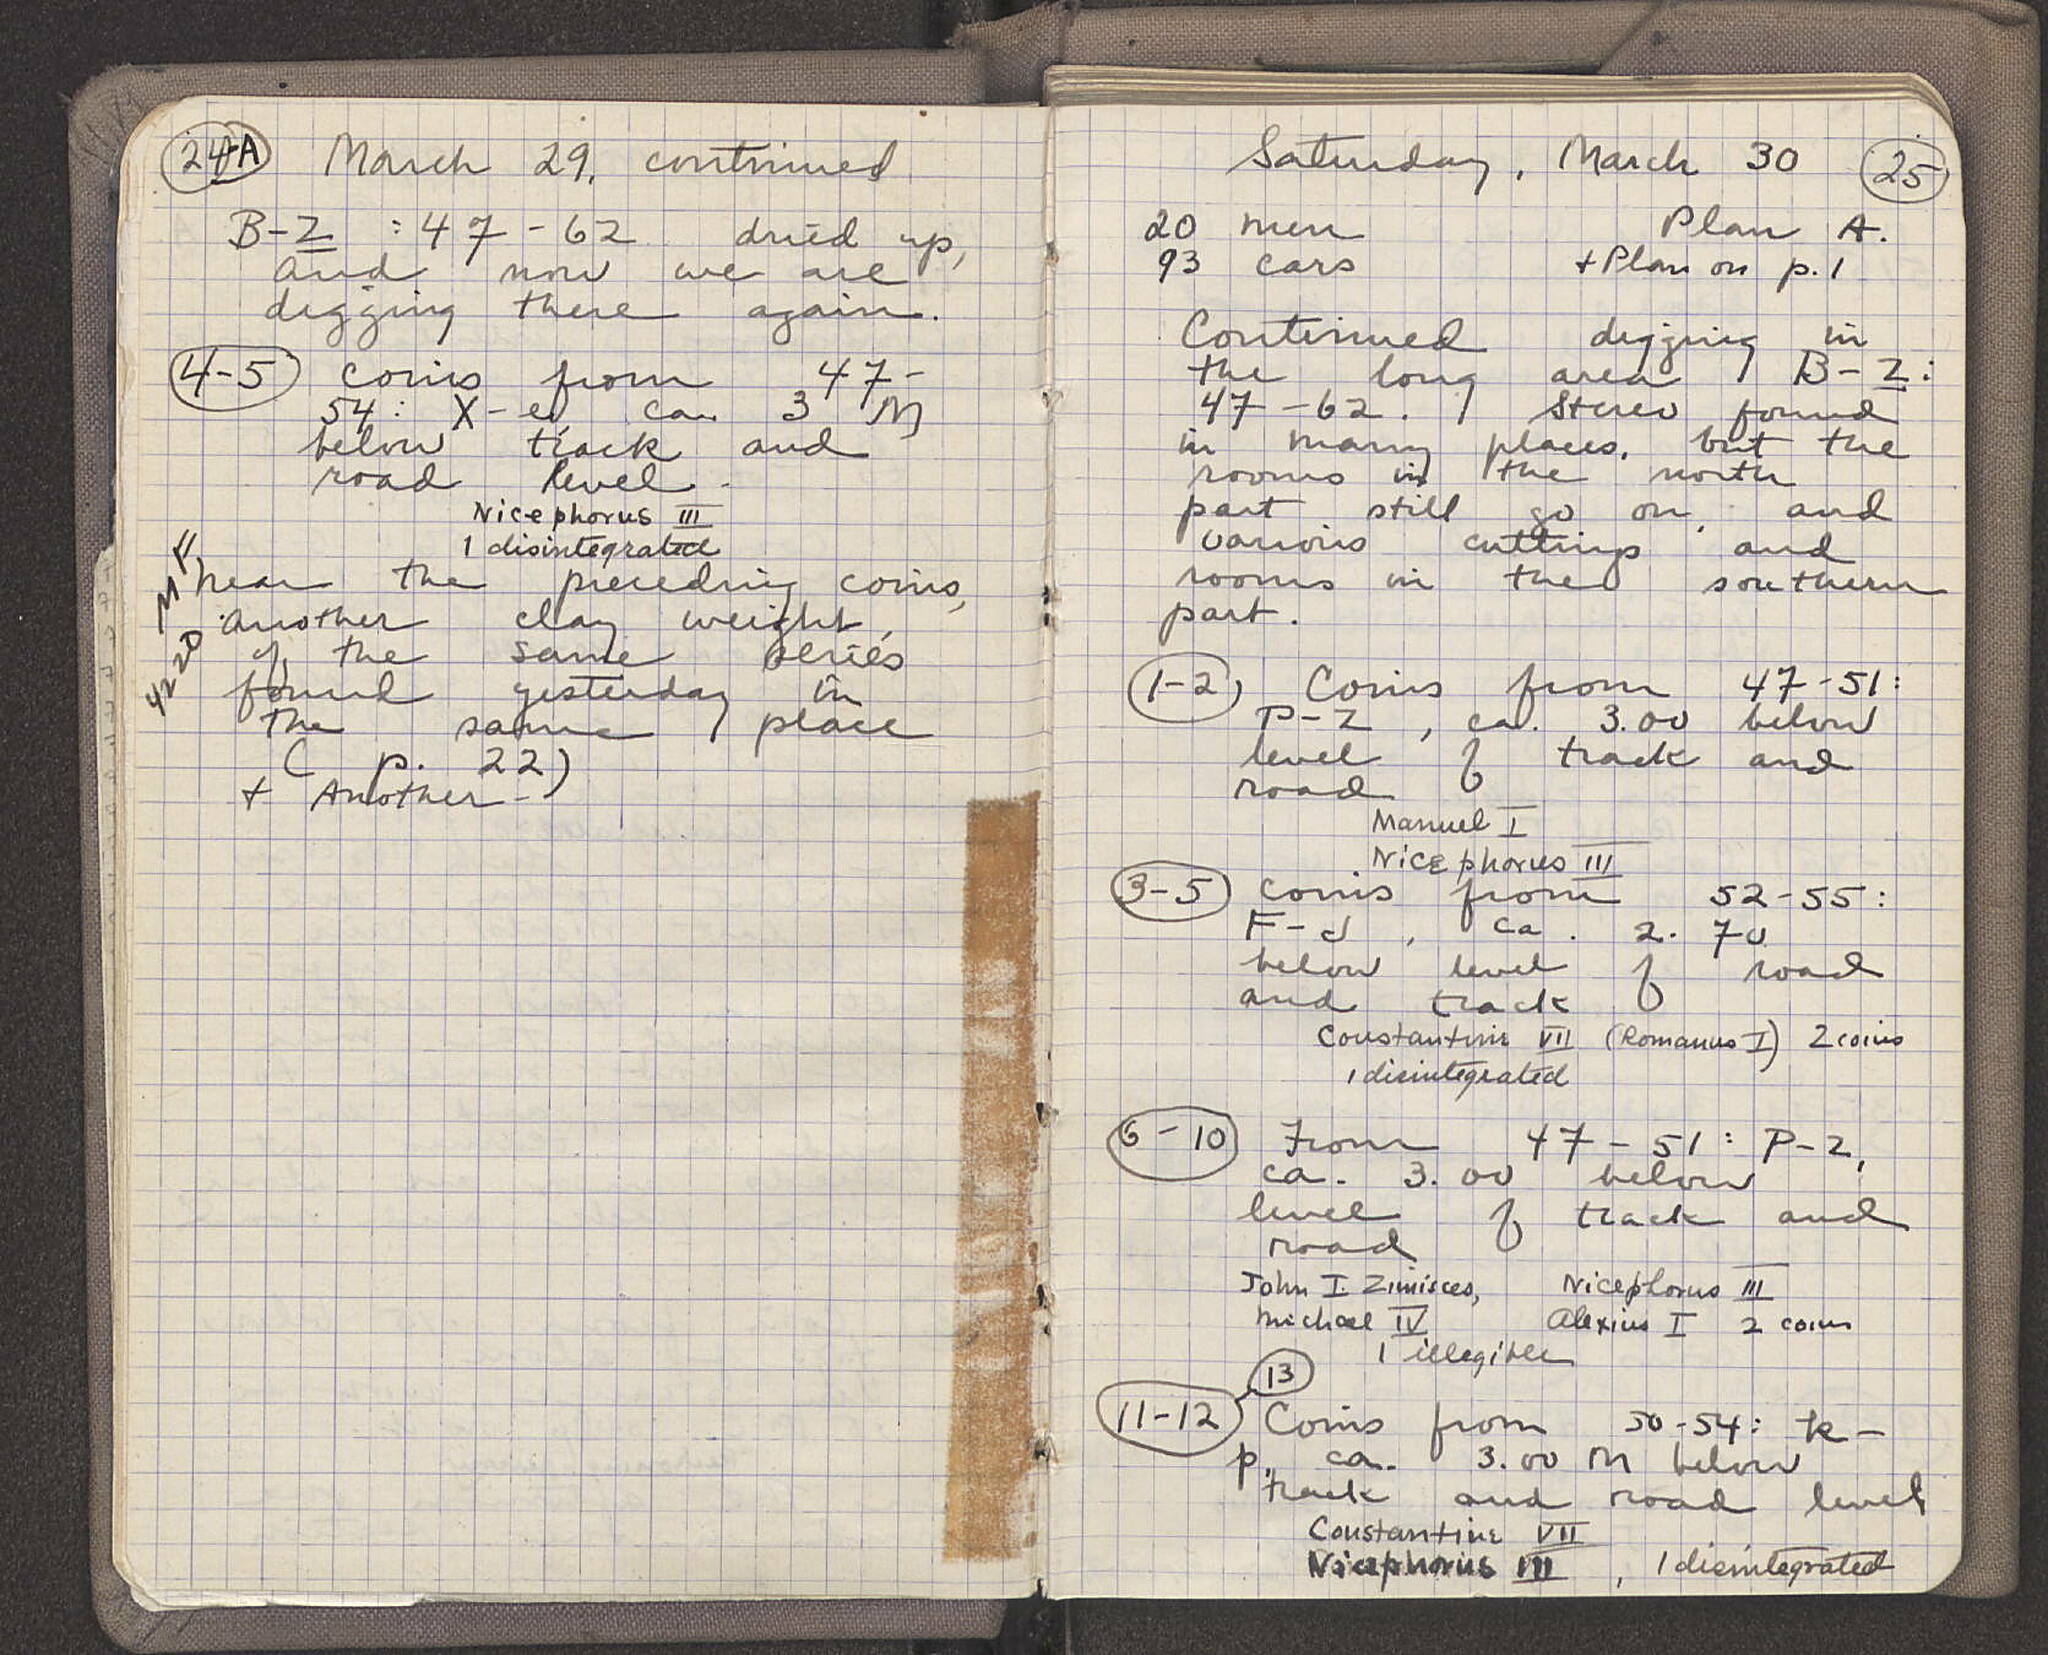 24-A March 29, continued
B-Z : 47-62 dried up,
and now we are
digging there again.
4-5 coins from 47-
54: X-e, ca. 3 M
below track and
road level.
Nicephorus III
1 disintegrated
MF
4220
near the preceding coins,
another clay weight,
of the same series
found yesterday in
the same place
( p. 22)
+ Another-)
Saturday, March 30 25
20 men Plan A.
93 cars + Plan on p. 1
Continued digging in
the long area B-Z:
47-62. Stereo found
in many places, but the
rooms in the north
part still go on, and
various cuttings and
rooms in the southern
part.
1-2, Coins from 47-51:
P-Z, ca. 3.00 below
level of track and
road
Manuel I
Nicephorus III
3-5 coins from 52-55:
F-d, ca. 2.70
below level of road
and track
Constantine VII (Romanus I) 2 coins
1 disintegrated
6-10 From 47-51: P-Z,
ca. 3.00 below
level of track and
road
John I. Zimisces, Nicephorus III
Michael IV Alexius I 2 coins
1 illegible
13
11-12 Coins from 50-54: k-
p, ca. 3.00 M below
track and road level
Constantine VII
Nicephorus III, 1 disintegrated